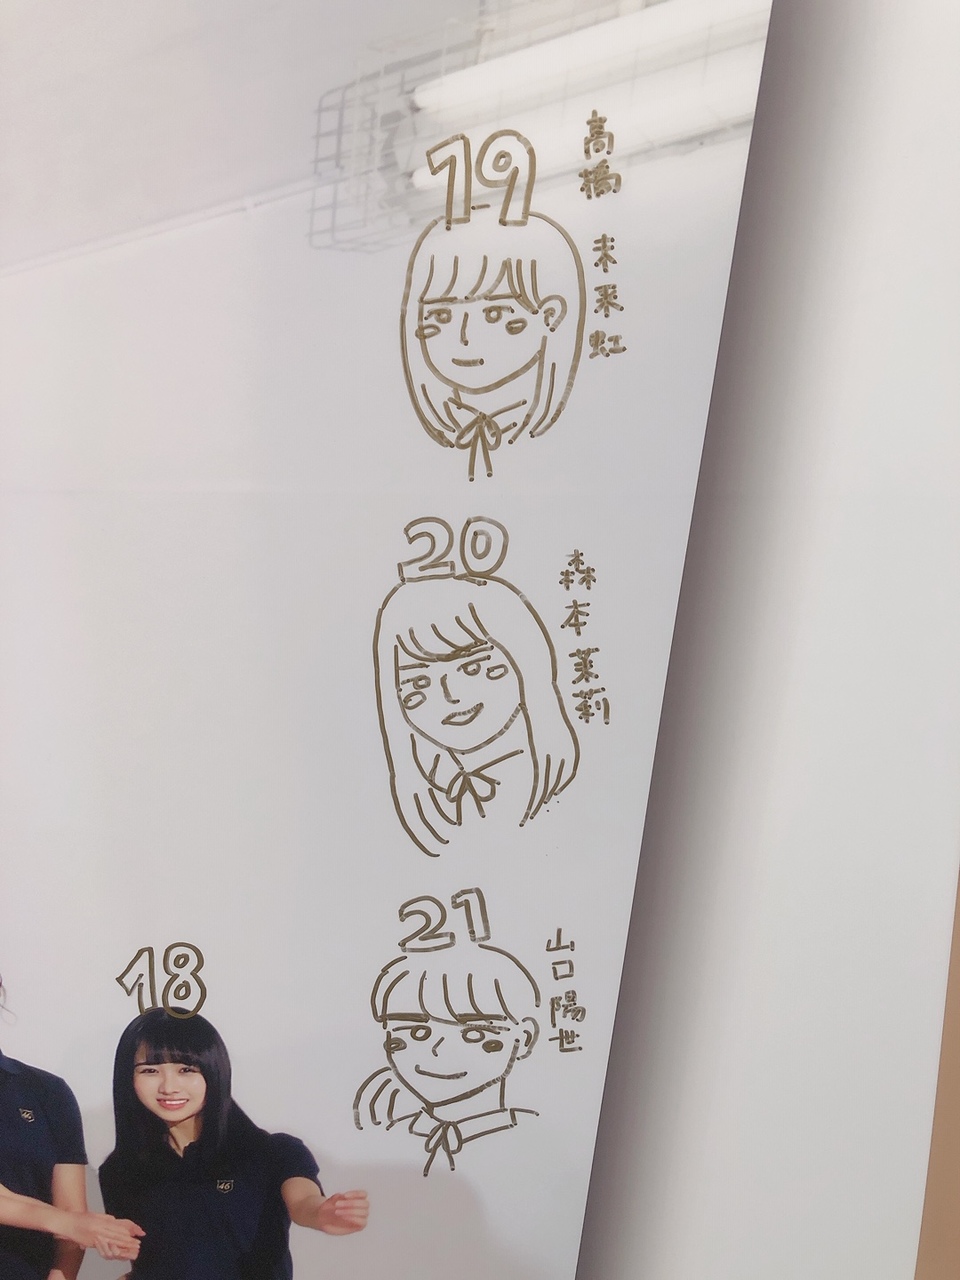 19
高橋
未来虹
20
森本茉莉
21
山口陽世
18
46